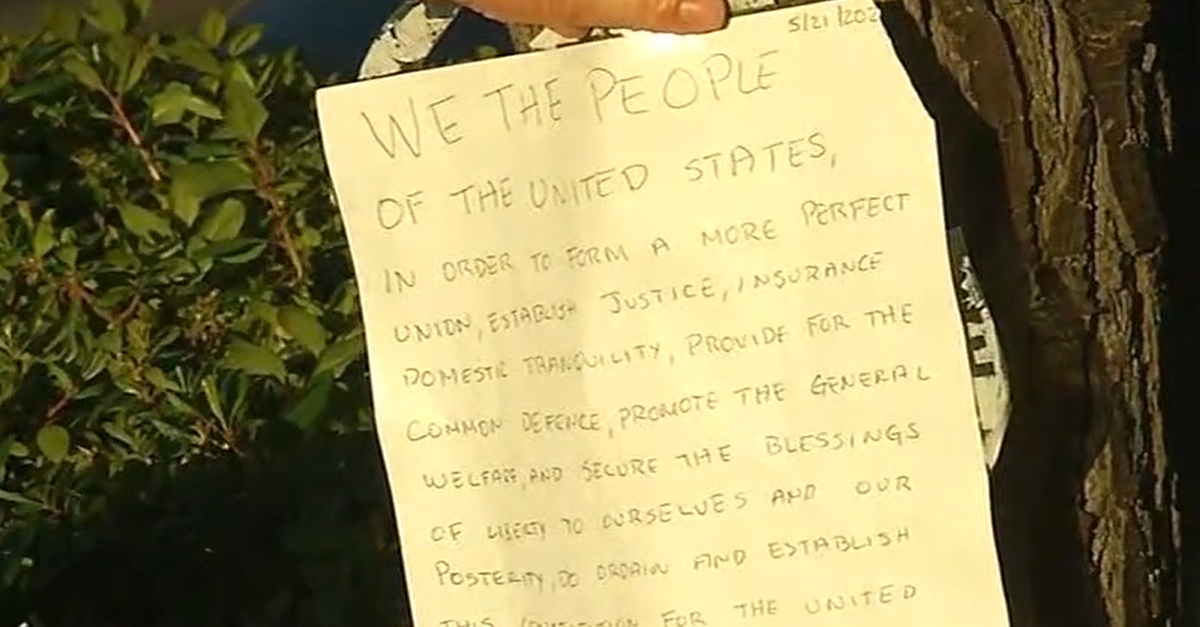 5/21/202
WE THE PEOPLE
OF THE UNITED STATES,
IN ORDER TO FORM A MORE PERFECT
UNION, ESTABLISH JUSTICE, INSURANCE
DOMESTIC TRANQUILITY, PROVIDE FOR THE
COMMON DEFENCE, PROMOTE THE GENERAL
WELFARE, AND SECURE THE BLESSINGS
OF LIBERTY TO OURSELVES AND OUR
POSTERITY, DO ORDAIN AND ESTABLISH
THIS CONSTITUTION FOR THE UNITED